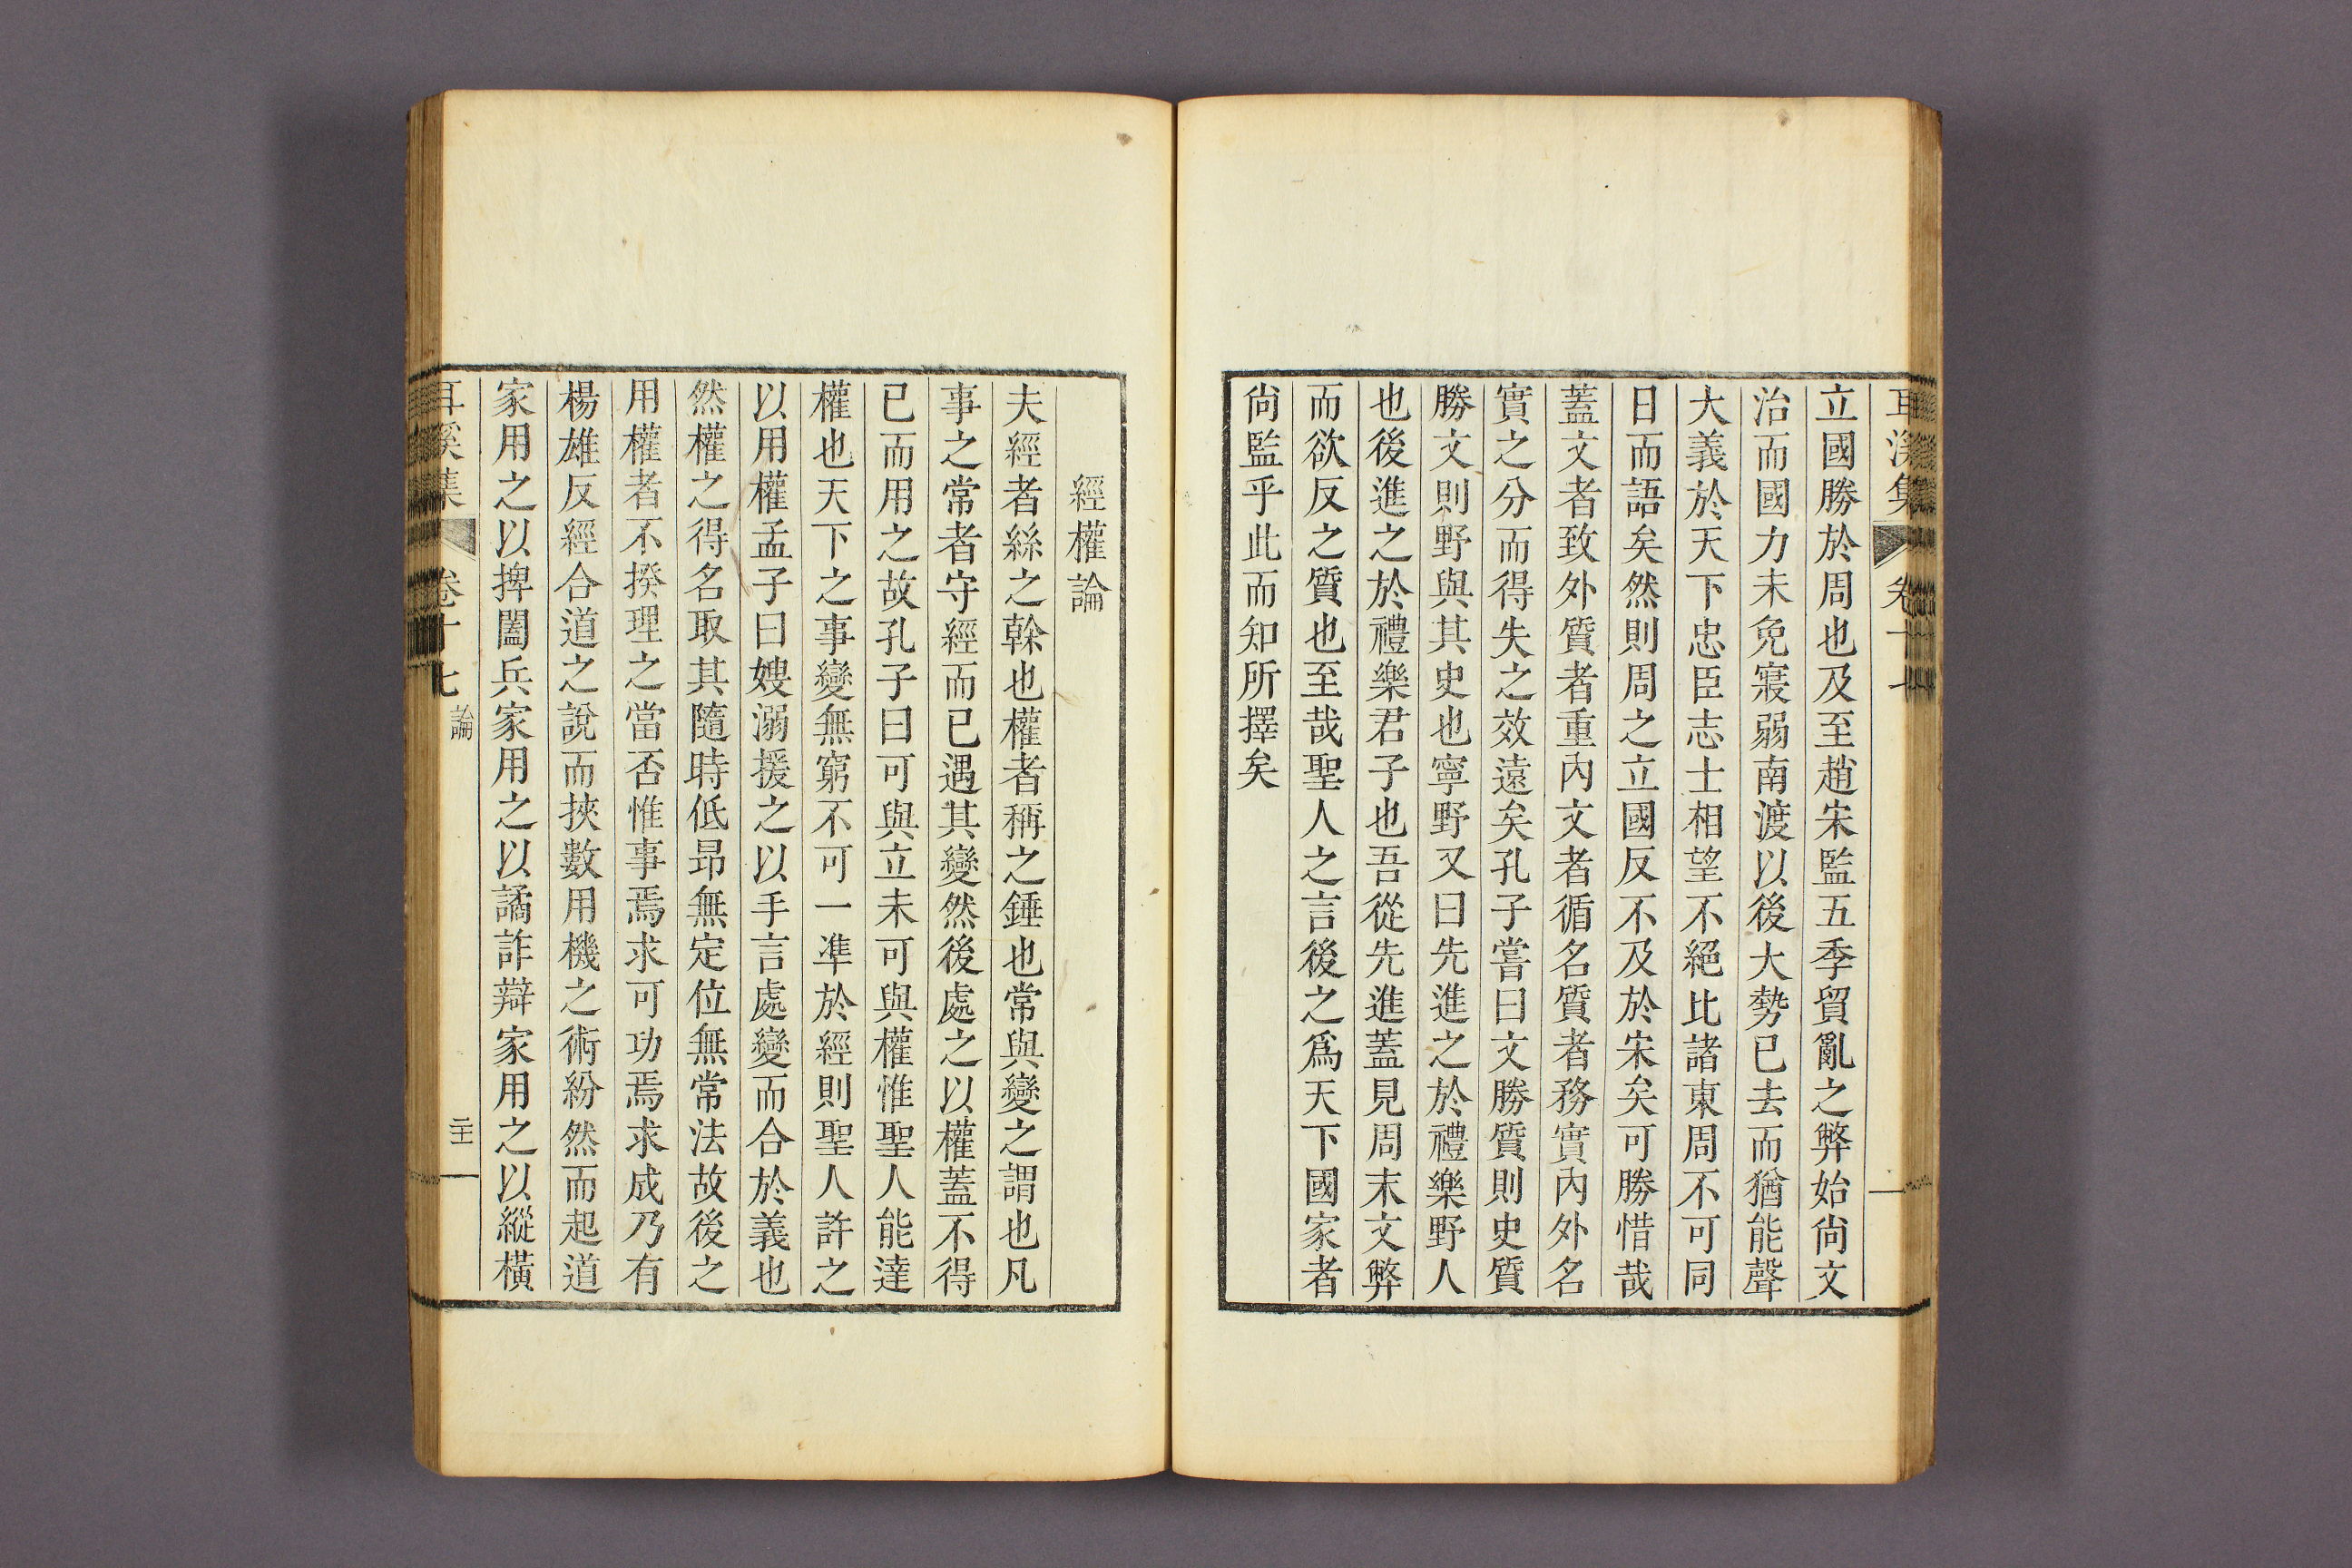 立國勝於周也及至趙宋監五季貿亂之弊始尙文
治而國力未免寢弱南渡以後大勢已去而猶能聲
大義於天下忠臣志士相望不絕比諸東周不可同
日而語矣然則周之立國反不及於宋矣可勝惜哉
蓋文者致外質者重內文者循名質者務實內外名
實之分而得失之效遠矣孔子嘗曰文勝質則史質
勝文則野與其史也寧野又曰先進之於禮樂野人
也後進之於禮樂君子也吾從先進蓋見周末文弊
而欲反之質也至哉聖人之言後之爲天下國家者
尙監乎此而知所擇矣
經權論
夫經者絲之幹也權者稱之錘也常與變之謂也凡
事之常者守經而已遇其變然後處之以權蓋不得
已而用之故孔子曰可與立未可與權惟聖人能達
權也天下之事變無窮不可一準於經則聖人許之
以用權孟子曰嫂溺援之以手言處變而合於義也
然權之得名取其隨時低昻無定位無常法故後之
用權者不揆理之當否惟事焉求可功焉求成乃有
楊雄反經合道之說而挾數用機之術紛然而起道
家用之以捭闔兵家用之以譎詐辯家用之以縱橫
耳溪集 卷十七 論 二十一